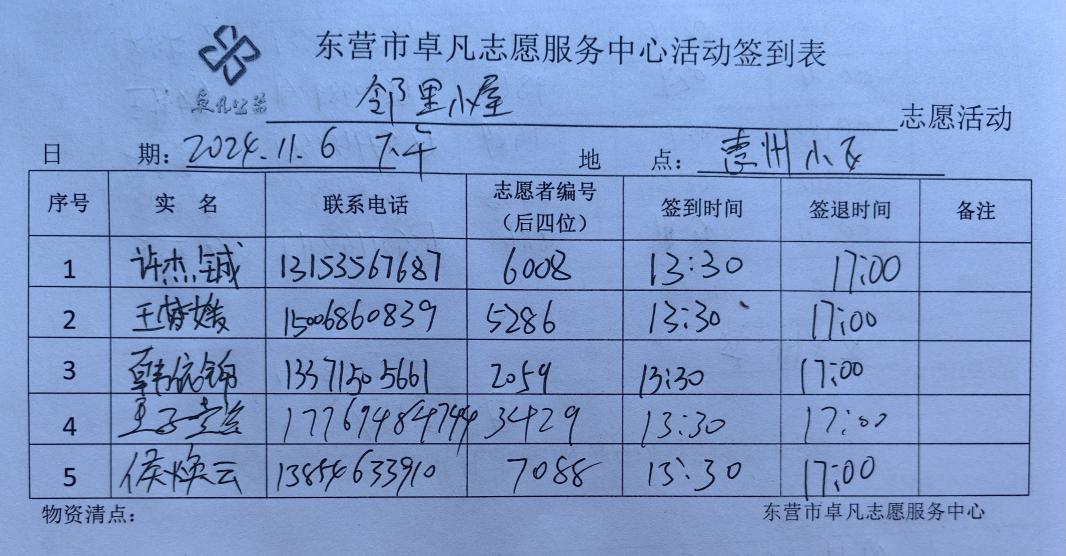 东营市卓凡志愿服务中心活动签到表
卓凡公益
邻里小屋 志愿活动
日 期: 2024.11.6 下午 地 点: 惠州小区
序号 实名 联系电话 志愿者编号(后四位) 签到时间 签退时间 备注
1 许杰铖 13153567687 6008 13:30 17:00
2 王 媛 15006860839 5286 13:30 17:00
3 韩依锦 13371505661 2059 13:30 17:00
4 王子 3429 13:30 17:00
5 侯焕云 13854633910 7088 13:30 17:00
物资清点: 东营市卓凡志愿服务中心